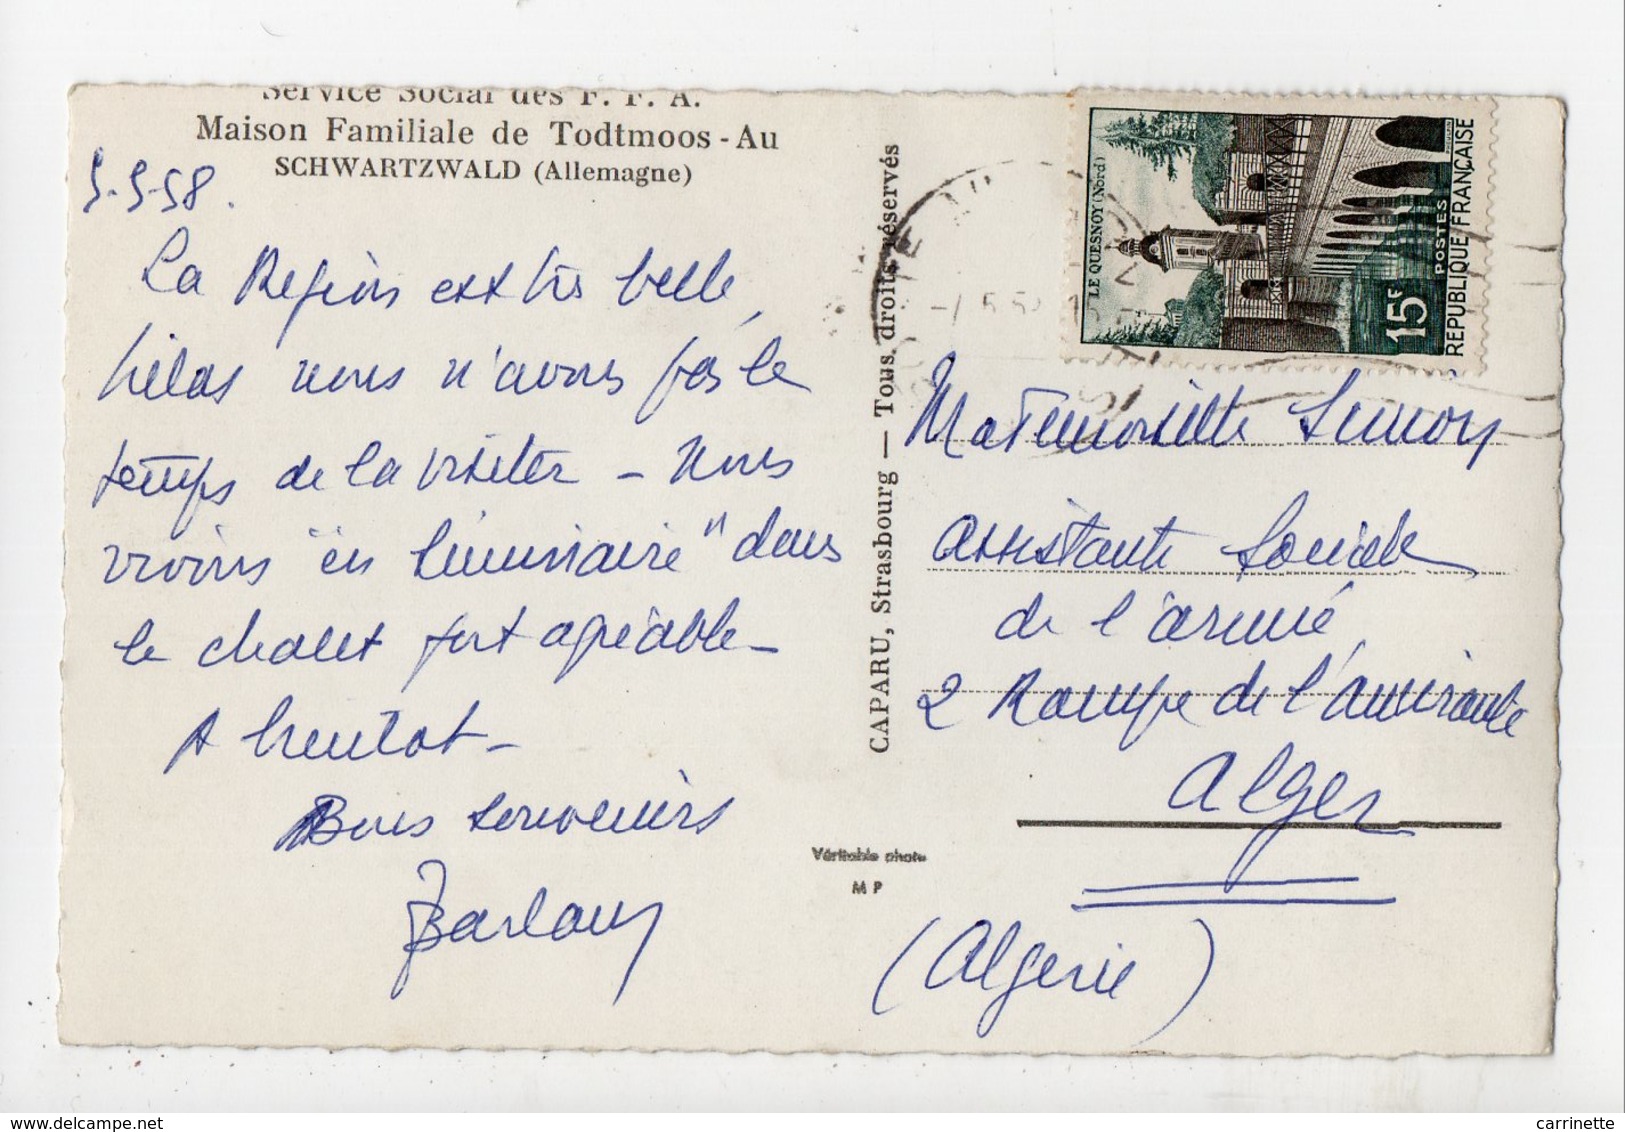 Service Social des F. F. A.
Maison Familiale de Todtmoos-Au
SCHWARTZWALD (Allemagne)
5-5-58.
La Region est très belle,
hélas nous n'avons pas le
temps de la visiter - Nous
vivons "en séminaire" dans
le chalet fort agréable -
A bientot -
Bons souvenirs
CAPARU, Strasbourg — Tous droits réservés
Véritable photo
M P
LE QUESNOY (Nord)
15F
POSTES
REPUBLIQUE FRANÇAISE
Mademoiselle Simon
Assistante Sociale
de l'armée,
2 Rampe de l'amirauté
Alger
(Algerie)
carrinette